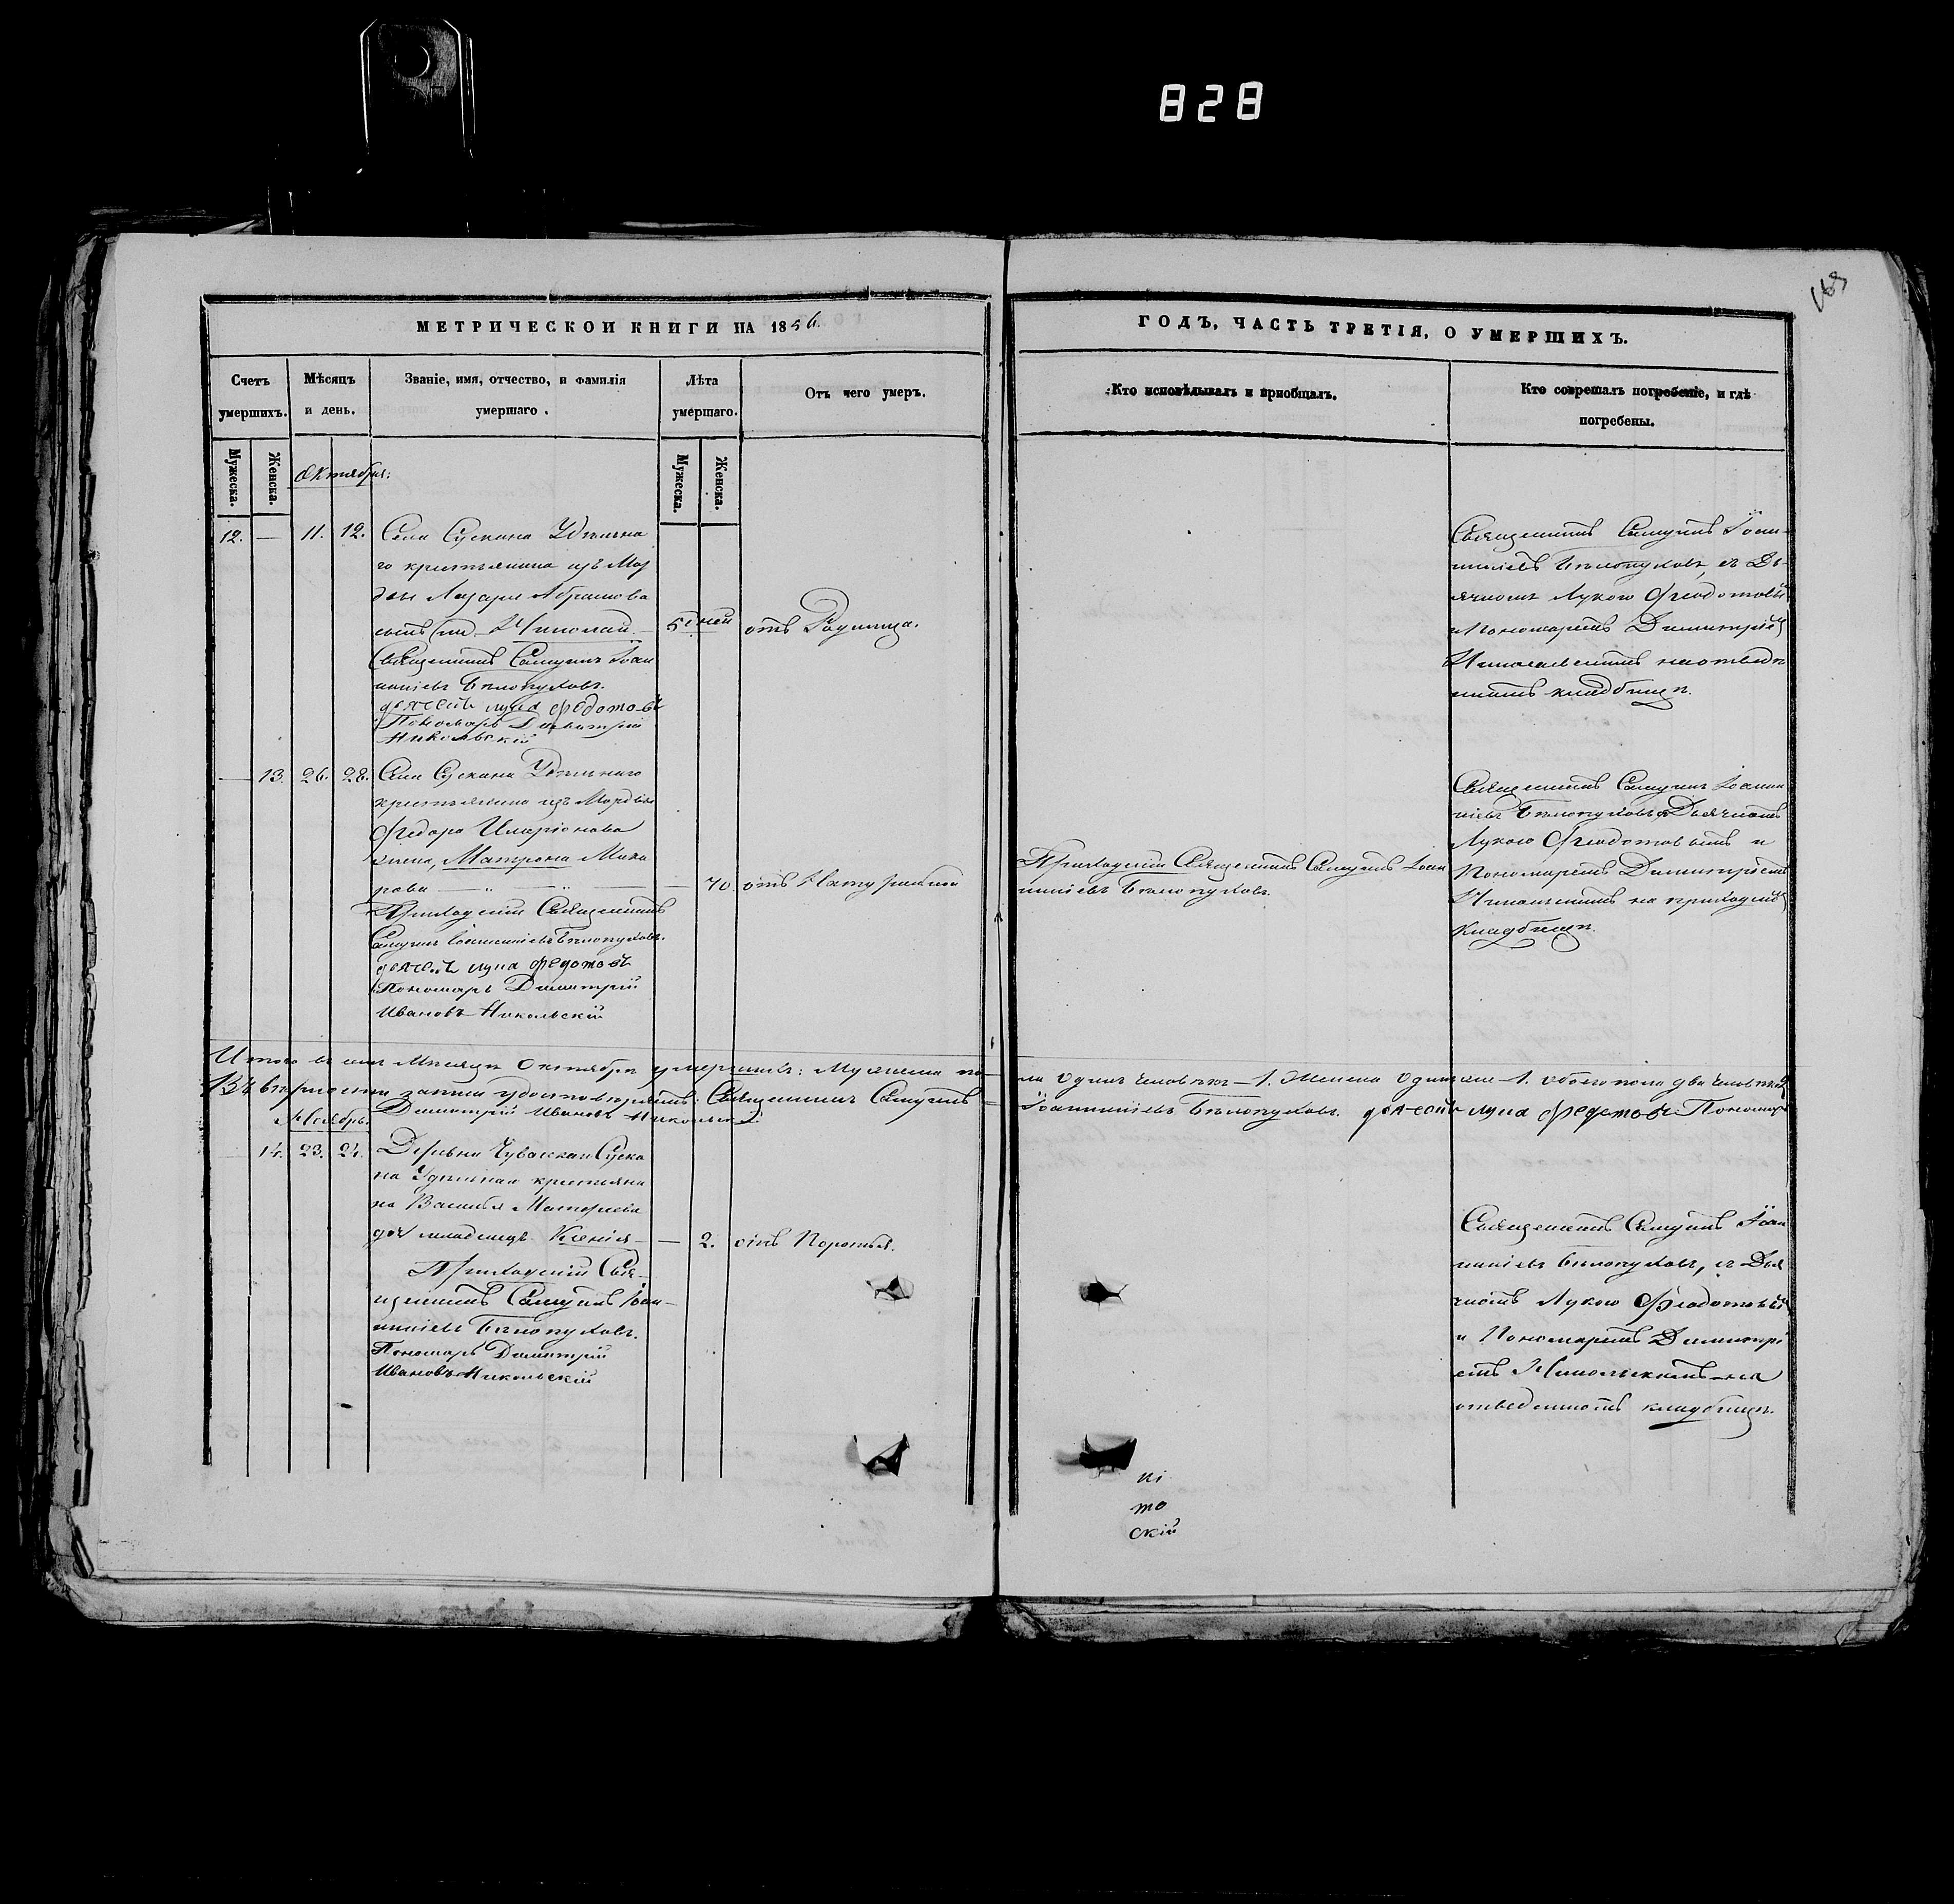 828
169
МЕТРИЧЕСКОЙ КНИГИ НА 1856.
ГОДЪ, ЧАСТЬ ТРЕТІЯ, О УМЕРШИХЪ.
Счетъ умершихъ.
Мѣсяцъ и день.
Званіе, имя, отчество, и фамилія умершаго.
Лѣта умершаго.
Отъ чего умеръ.
Кто исповѣдывалъ и пріобщалъ.
Кто совершалъ погребеніе, и гдѣ погребены.
Мужеска.
Женска.
Мужеска.
Женска.
Октября:
12. — 11. 12.
Села Сускана Удѣльна
го крестьянина изъ Мор
двы Лазаря Абрамова
сынъ Николай
5 дней
отъ Родимца.
Священникъ Самуилъ Іоан
никіевъ Бѣлопуховъ.
дьячекъ лука федотовъ
Пономарь Димитрій
Никольскій
Священникъ Самуилъ Іоан-
никіевъ Бѣлопуховъ, съ Дь-
ячкомъ Лукою Феодотовы
и Пономаремъ Димитріе
Никольскимъ на отведен
номъ кладбищѣ.
— 13. 26. 28.
Села Сускана Удѣльнаго
крестьянина изъ Мордвы
Федора Иларіонова
жена, Матрона Мака
рова — — —
— 70.
отъ Натуральной
Приходскій Священникъ
Самуилъ Іоанникіевъ Бѣлопуховъ.
дьячекъ лука федотовъ
Пономарь Димитрій
Ивановъ Никольскій
Приходскій Священникъ Самуилъ Іоан
никіевъ Бѣлопуховъ.
Священникъ Самуилъ Іоанни
кіевъ Бѣлопуховъ съ Дьячкомъ
Лукою Феодотовымъ и
Пономаремъ Димитріемъ
Никольскимъ на приходскомъ
кладбищѣ.
Итого въ семъ Мѣсяцѣ Октябрѣ умершихъ: Мужеска по-
ла Одинъ человѣкъ — 1. Женска Одна же — 1. обоего пола два человѣка
Священникъ Самуилъ
Іоанникіевъ Бѣлопуховъ. дьячекъ лука федотовъ Пономарь
Димитрій Ивановъ Никольскій
Ноябрь.
14. 23. 24.
Деревни Чувашскаго Суска
на Удѣльнаго крестьяни
на Василья Матфеева
дочь младенецъ Ксенія
— 2.
отъ Поротья.
Приходскій Свя-
щенникъ Самуилъ Іоан-
никіевъ Бѣлопуховъ.
Пономарь Димитрій
Ивановъ Никольскій
Священникъ Самуилъ Іоан
никіевъ Бѣлопуховъ, съ Дья
чкомъ Лукою Феодотовы
и Пономаремъ Димитрі
емъ Никольскимъ на
отведенномъ кладбищѣ.
ні
то
скій